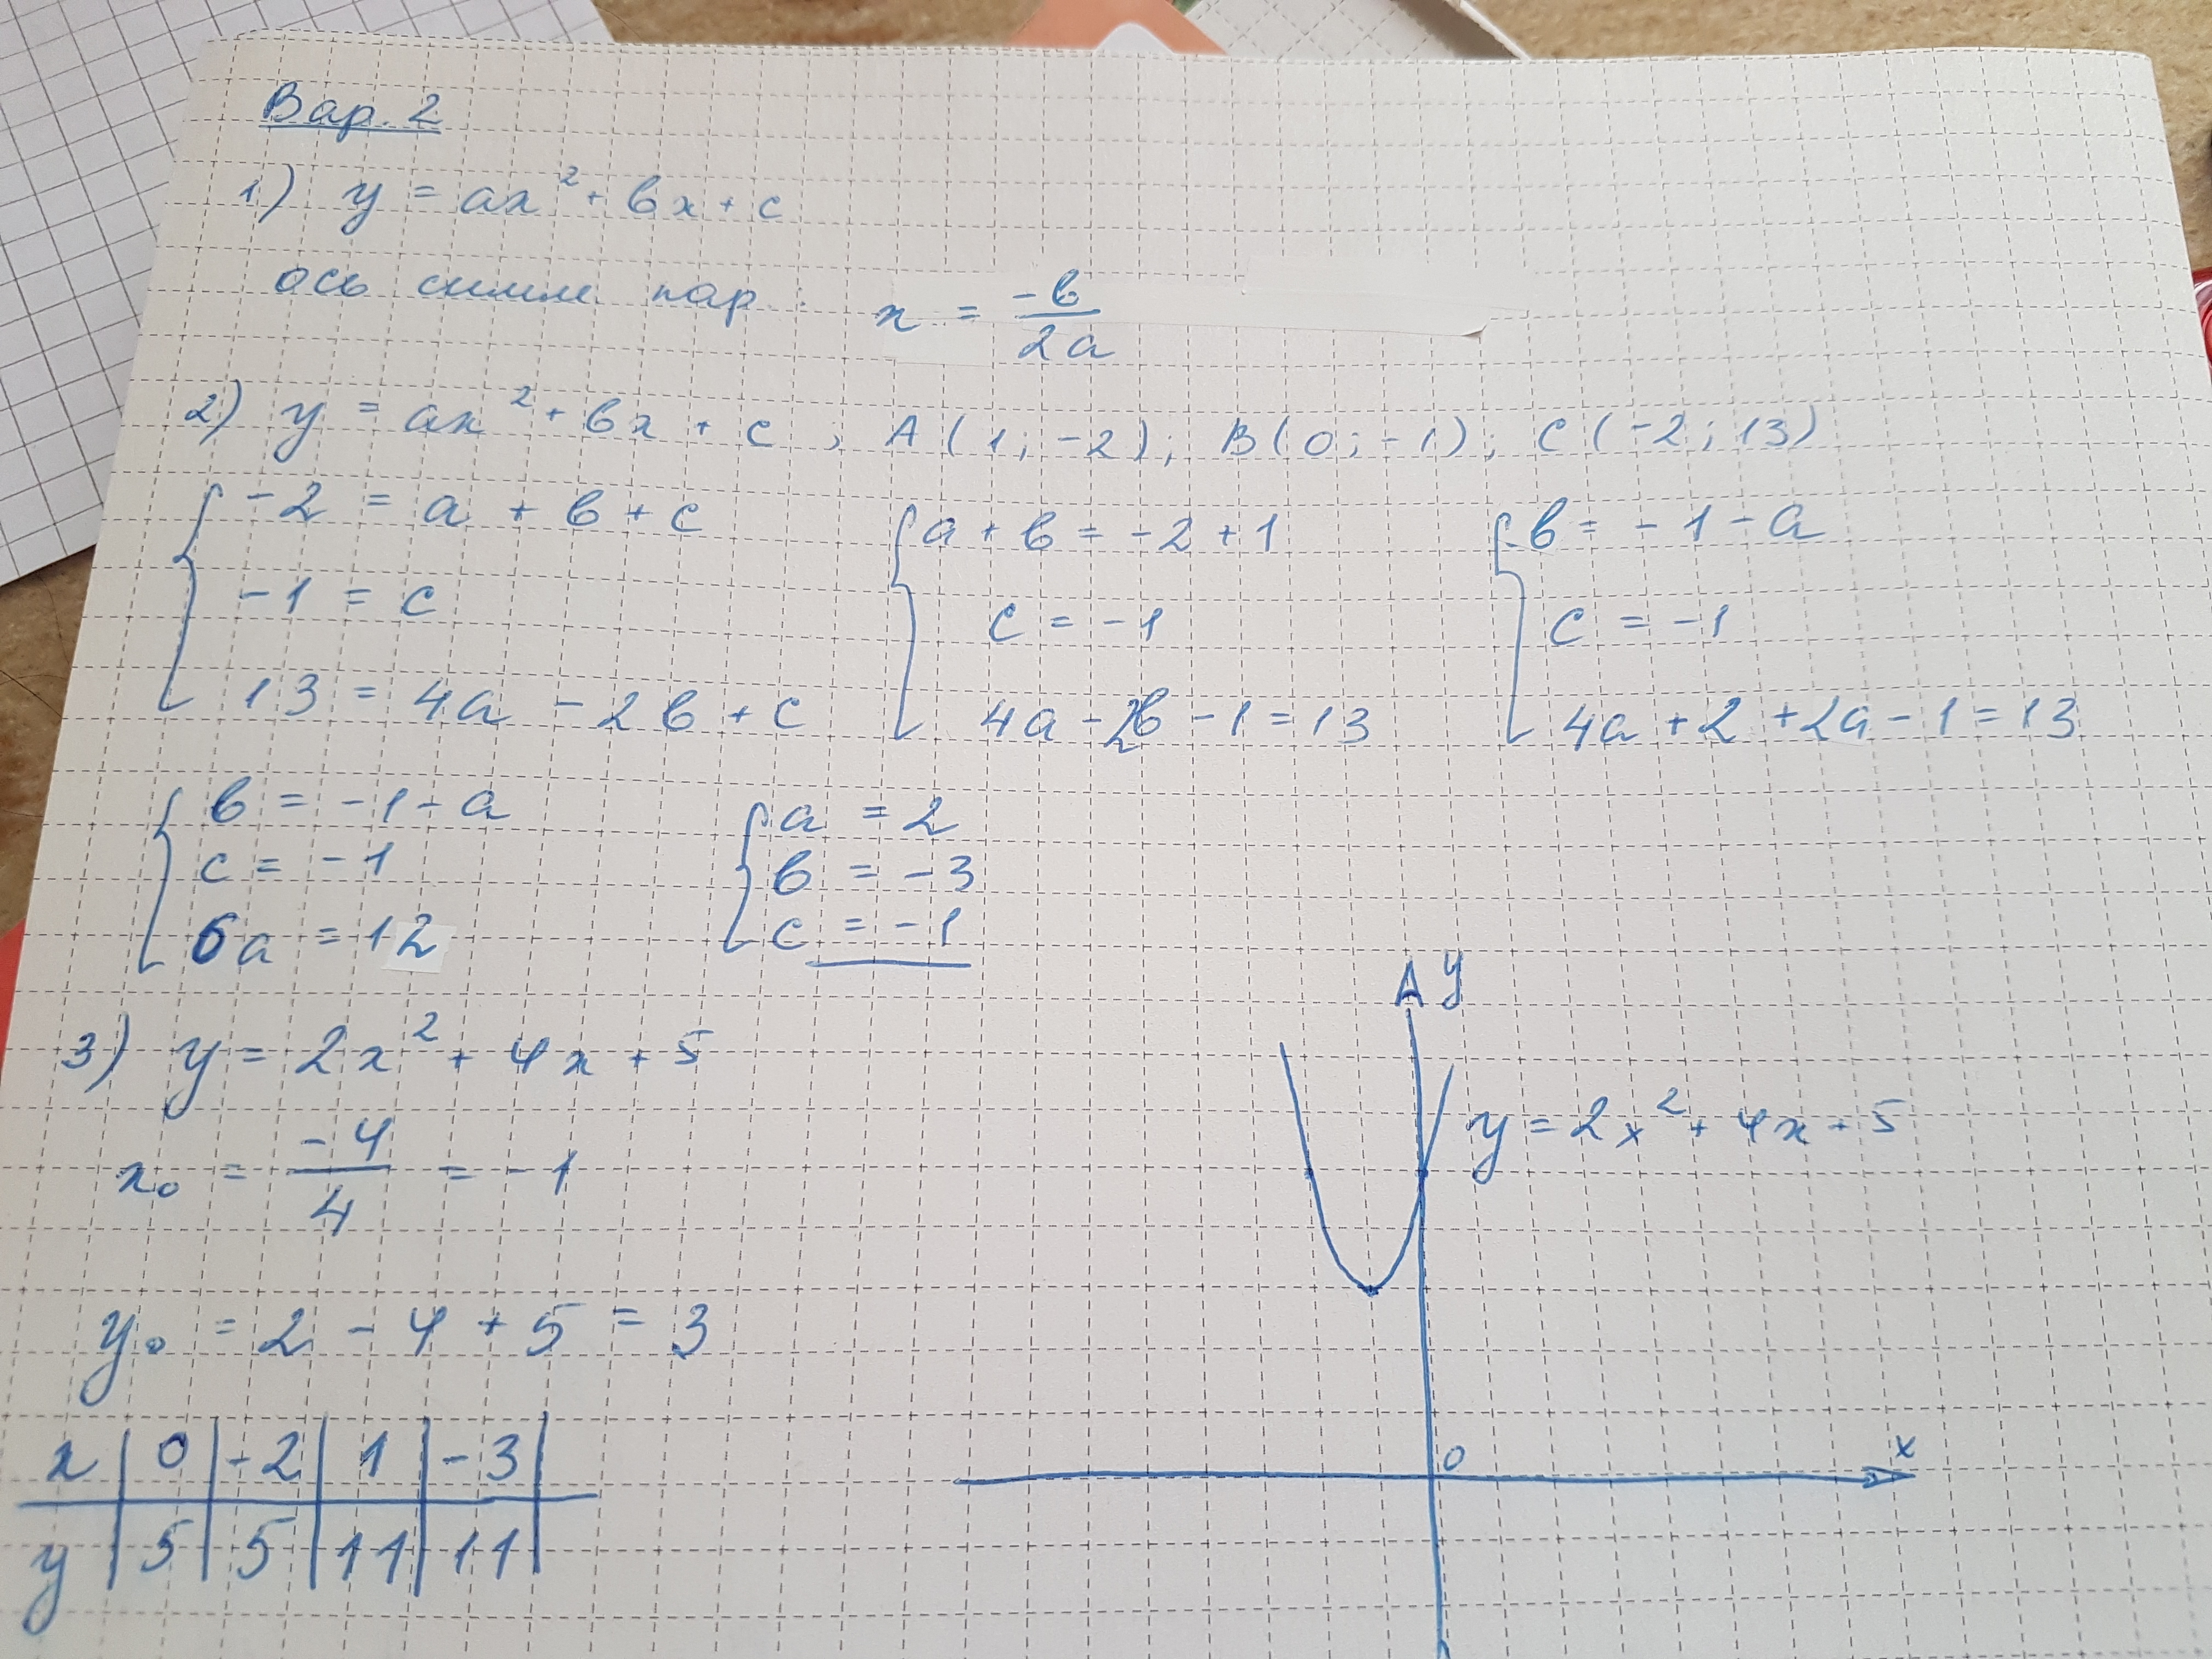 Вар. 2
1) y = ax² + bx + c
ось симм пар : x = -b / 2a
2) y = ax² + bx + c ; A (1; -2); B (0; -1); C (-2; 13)
{ -2 = a + b + c { a + b = -2 + 1 { b = -1 - a
-1 = c c = -1 c = -1
13 = 4a - 2b + c 4a - 2b - 1 = 13 4a + 2 + 2a - 1 = 13
{ b = -1 - a { a = 2
c = -1 b = -3
6a = 12 c = -1
3) y = 2x² + 4x + 5
x₀ = -4 / 4 = -1
y₀ = 2 - 4 + 5 = 3
x | 0 | -2 | 1 | -3 |
y | 5 | 5 | 11 | 11 |
y
y = 2x² + 4x + 5
0 x